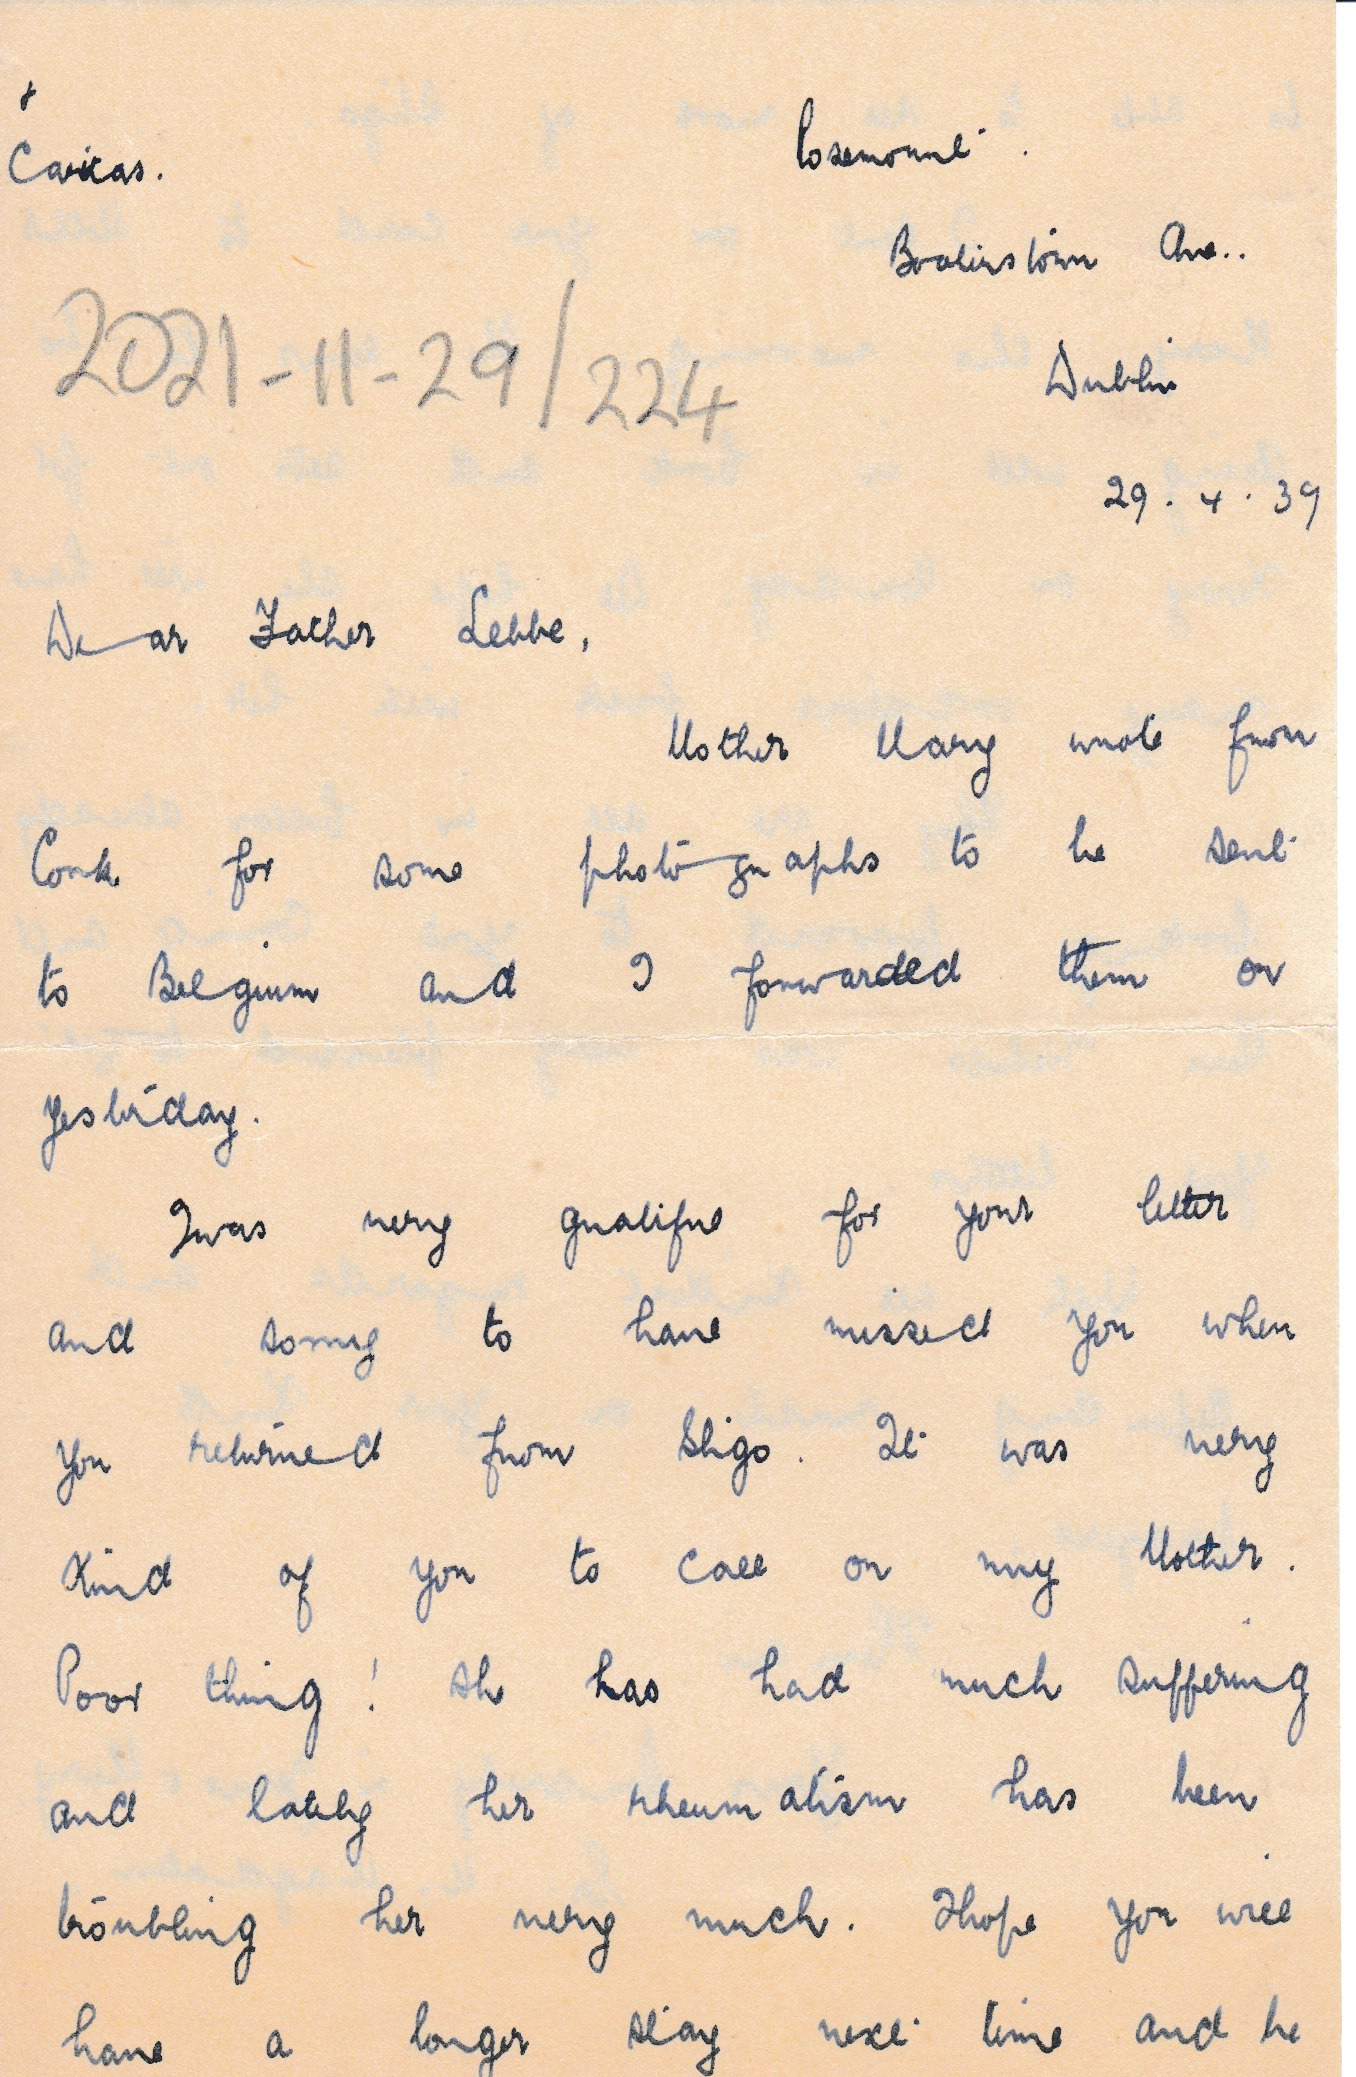 +
Caritas.
Rosemount.
Booterstown Ave..
Dublin
29. 4. 39
2021-11-29/224
Dear Father Lebbe,
Mother Mary wrote from
Cork for some photographs to be sent
to Belgium and I forwarded them on
yesterday.
I was very grateful for your letter
and sorry to have missed you when
you returned from Sligo. It was very
kind of you to call on my Mother.
Poor thing! she has had much suffering
and lately her rheumatism has been
troubling her very much. I hope you will
have a longer stay next time and be